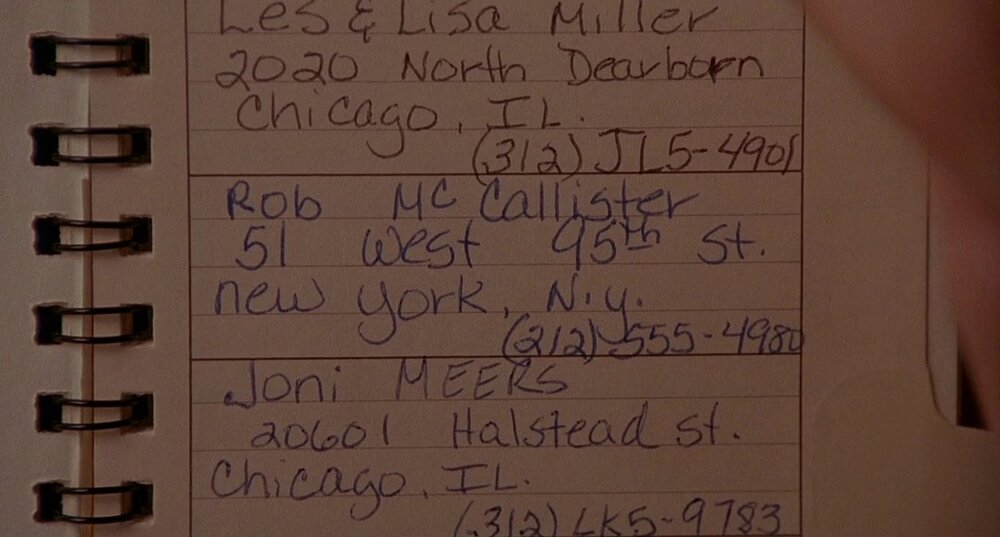 Les & Lisa Miller
2020 North Dearborn
Chicago, IL.
(312) JL5-4901
Rob McCallister
51 West 95th St.
new york, N.y.
(212) 555-4980
Joni MEERS
20601 Halstead St.
Chicago, IL.
(312) LK5-9783